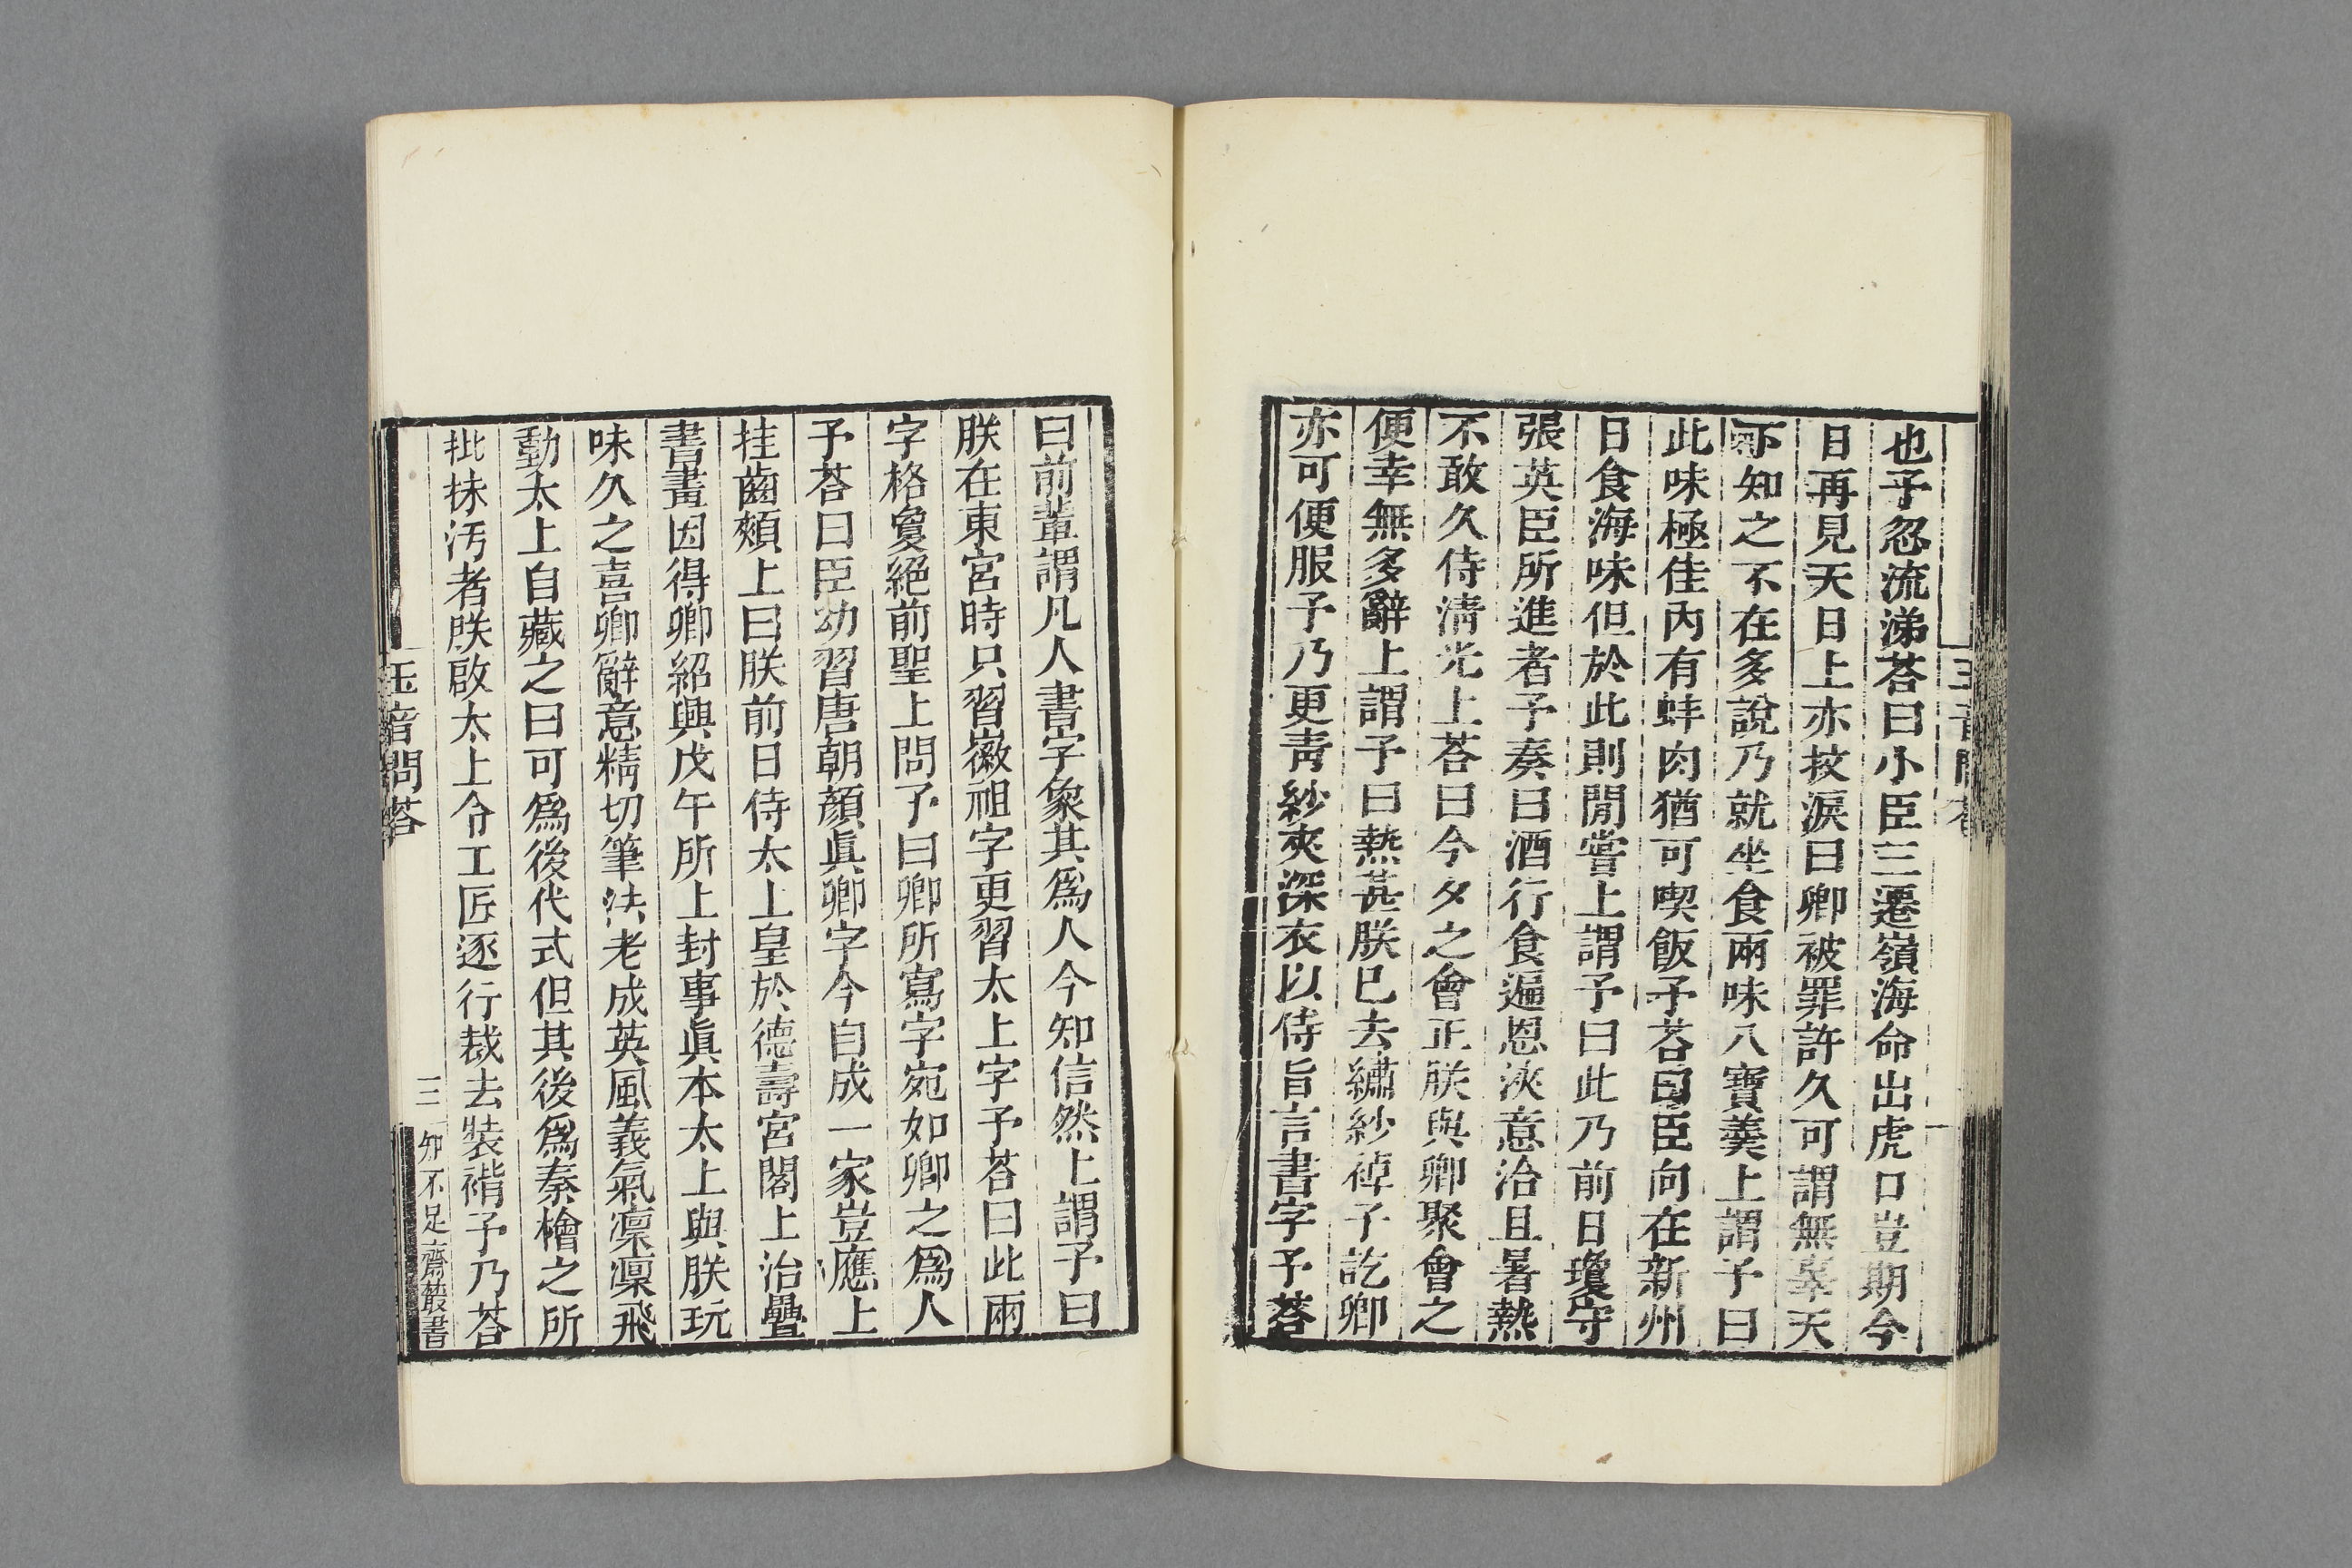 也予忍流涕荅曰小臣三遷嶺海命出虎口豈期今
日再見天日上亦抆淚曰卿被罪許久可謂無辜天
下知之不在多說乃就坐食兩味八寶羹上謂予曰
此味極佳內有蚌肉猶可喫飯予荅曰臣向在新州
日食海味但於此則閒嘗上謂予曰此乃前日瓊守
張英臣所進者予奏曰酒行食遍恩浹意洽且暑熱
不敢久侍清光上荅曰今夕之會正朕與卿聚會之
便幸無多辭上謂予曰熱甚朕已去繡紗禣子訖卿
亦可便服予乃更青紗夾深衣以侍旨言書字予荅
曰前輩謂凡人書字象其爲人今知信然上謂予曰
朕在東宮時只習徽祖字更習太上字予荅曰此兩
字格敻絕前聖上問予曰卿所寫字宛如卿之爲人
予荅曰臣幼習唐朝顏眞卿字今自成一家豈應上
挂齒頰上曰朕前日侍太上皇於德壽宮閣上治疊
書畫因得卿紹興戊午所上封事眞本太上與朕玩
味久之喜卿辭意精切筆法老成英風義氣凜凜飛
動太上自藏之曰可爲後代式但其後爲秦檜之所
批抹汚者朕啟太上令工匠逐行裁去裝褙予乃荅
玉音問荅
三
知不足齋叢書